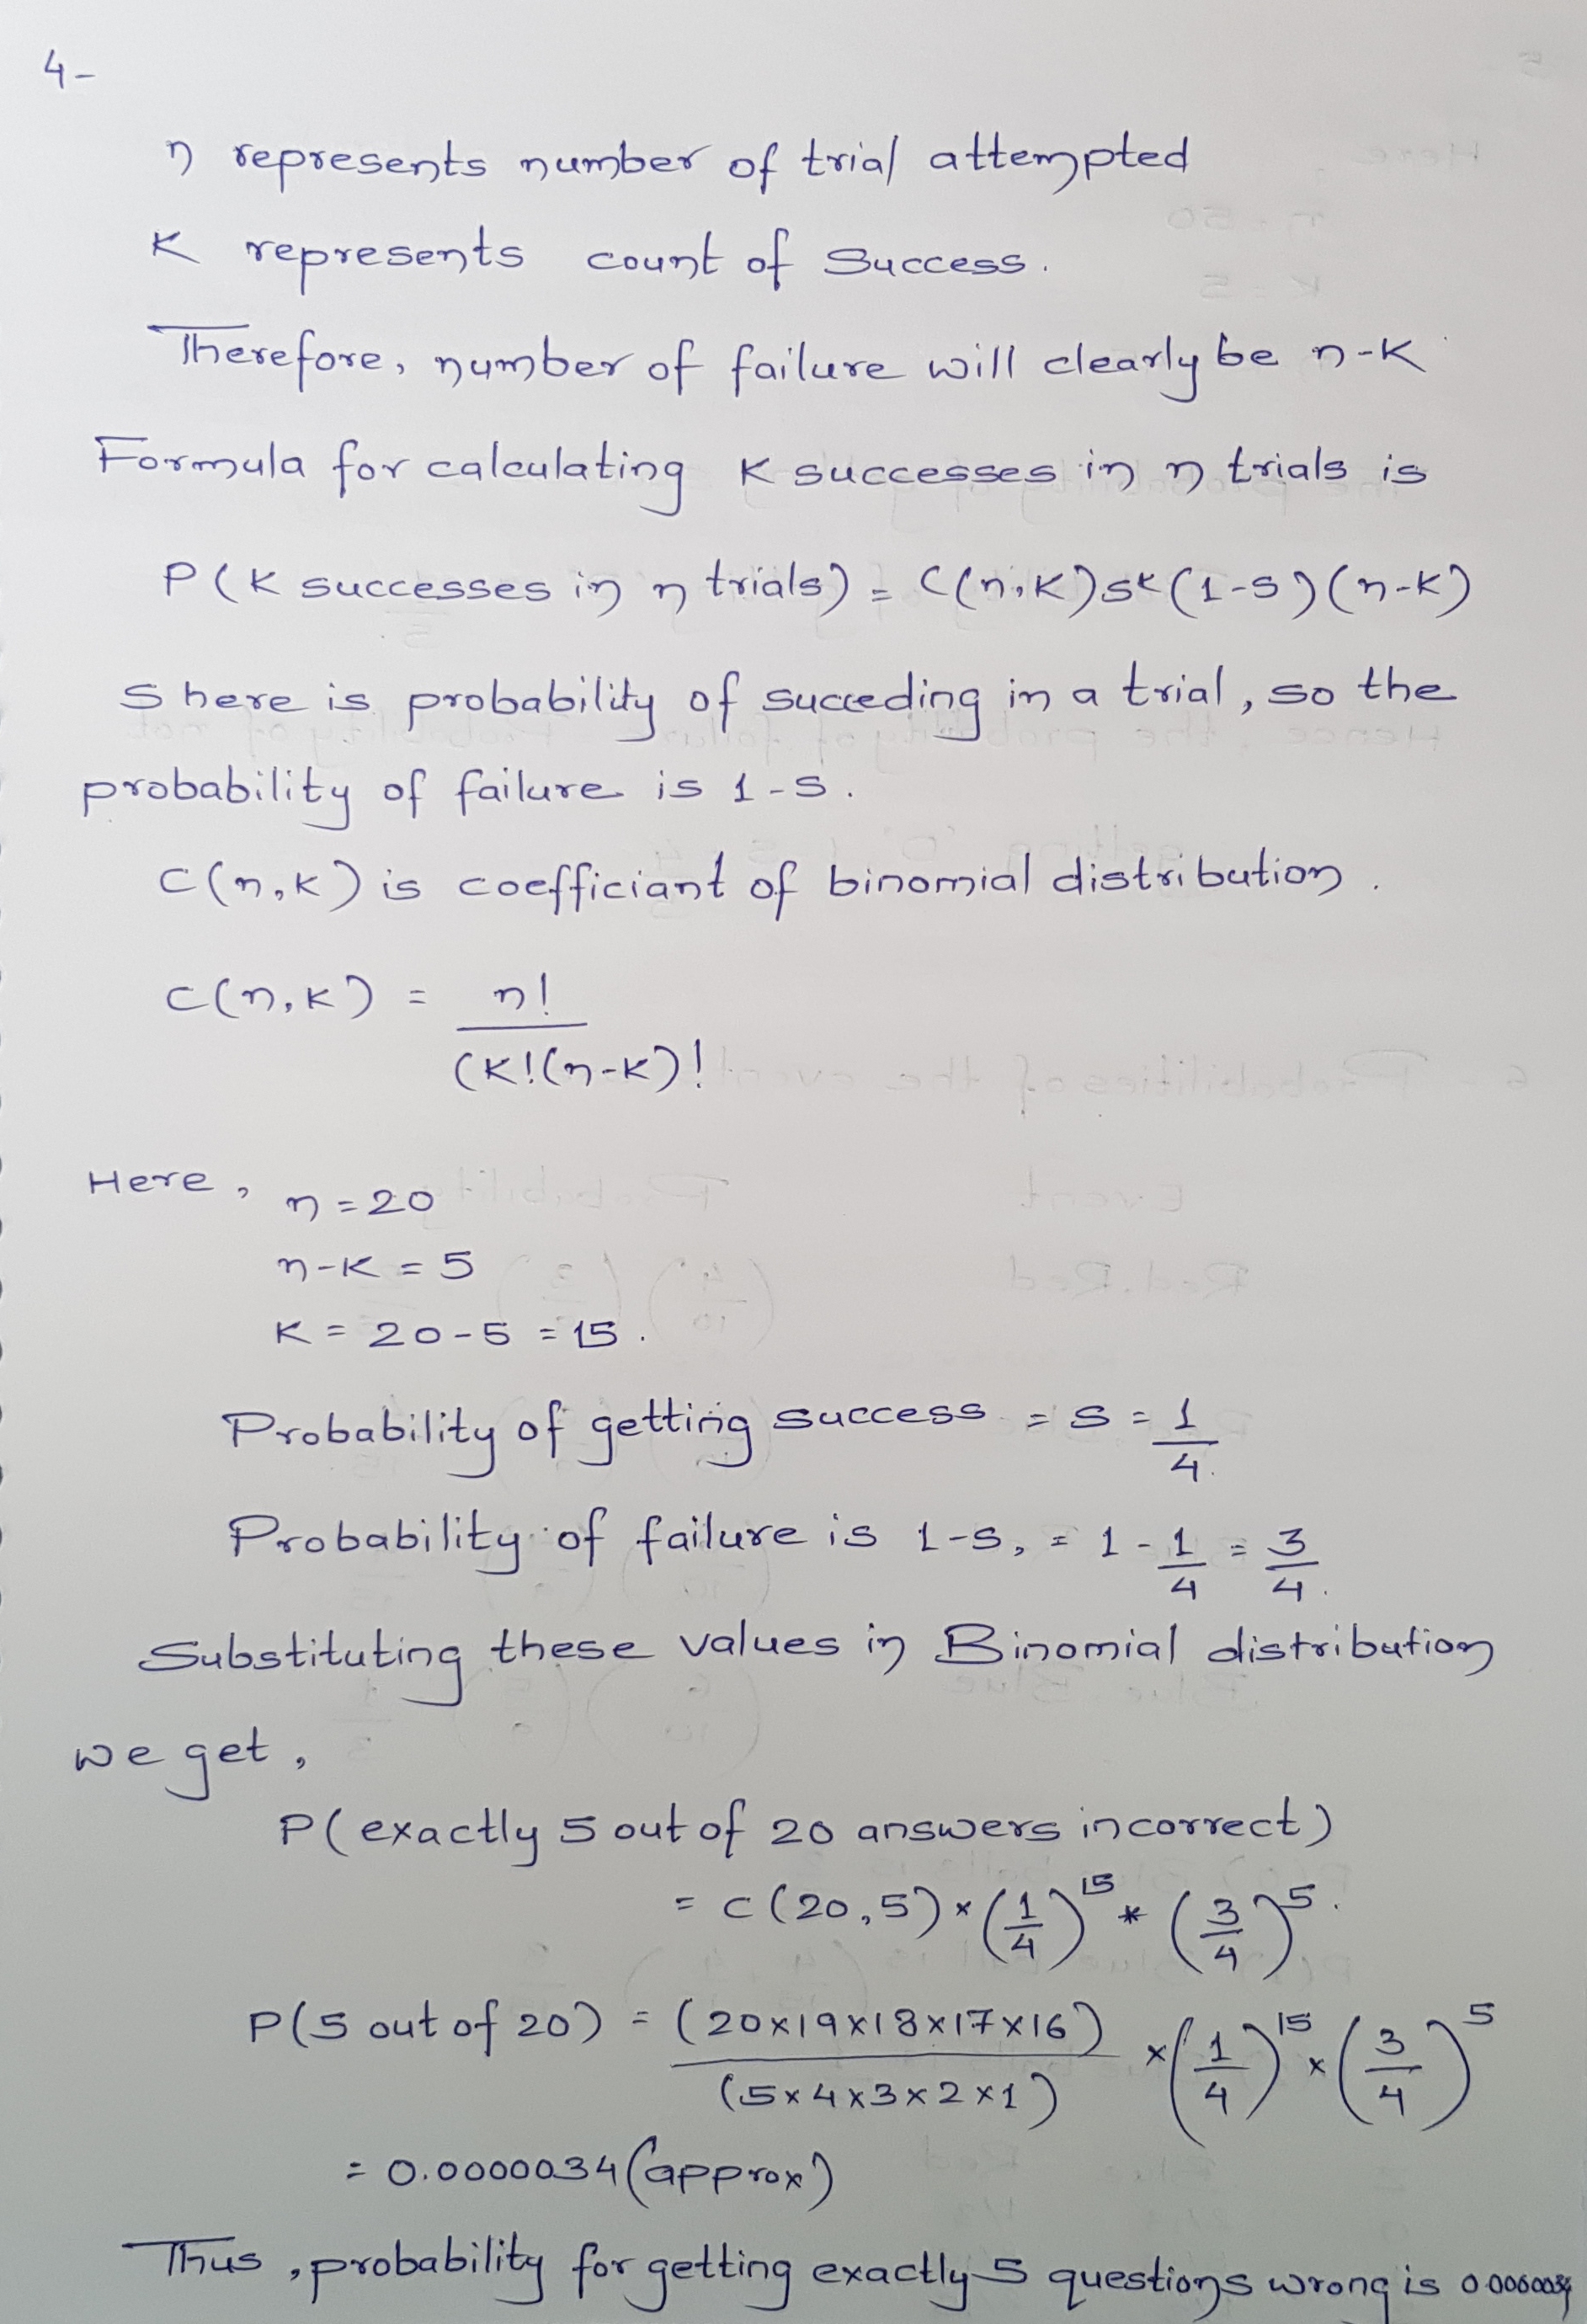 4-
n represents number of trial attempted
K represents count of Success.
Therefore, number of failure will clearly be n-K
Formula for calculating K successes in n trials is
P(K successes in n trials) = C(n,K)sᴷ(1-s)(n-K)
S here is probability of succeding in a trial, so the
probability of failure is 1-s.
C(n,K) is coefficiant of binomial distribution.
C(n,K) = n!
(K!(n-K)!
Here, n=20
n-K = 5
K = 20-5 = 15.
Probability of getting success = S = 1/4.
Probability of failure is 1-s, = 1 - 1/4 = 3/4.
Substituting these values in Binomial distribution
we get,
P(exactly 5 out of 20 answers incorrect)
= C(20,5) * (1/4)^15 * (3/4)^5.
P(5 out of 20) = (20x19x18x17x16)/(5x4x3x2x1) x (1/4)^15 x (3/4)^5
= 0.0000034(approx)
Thus, probability for getting exactly 5 questions wrong is 0.0000034